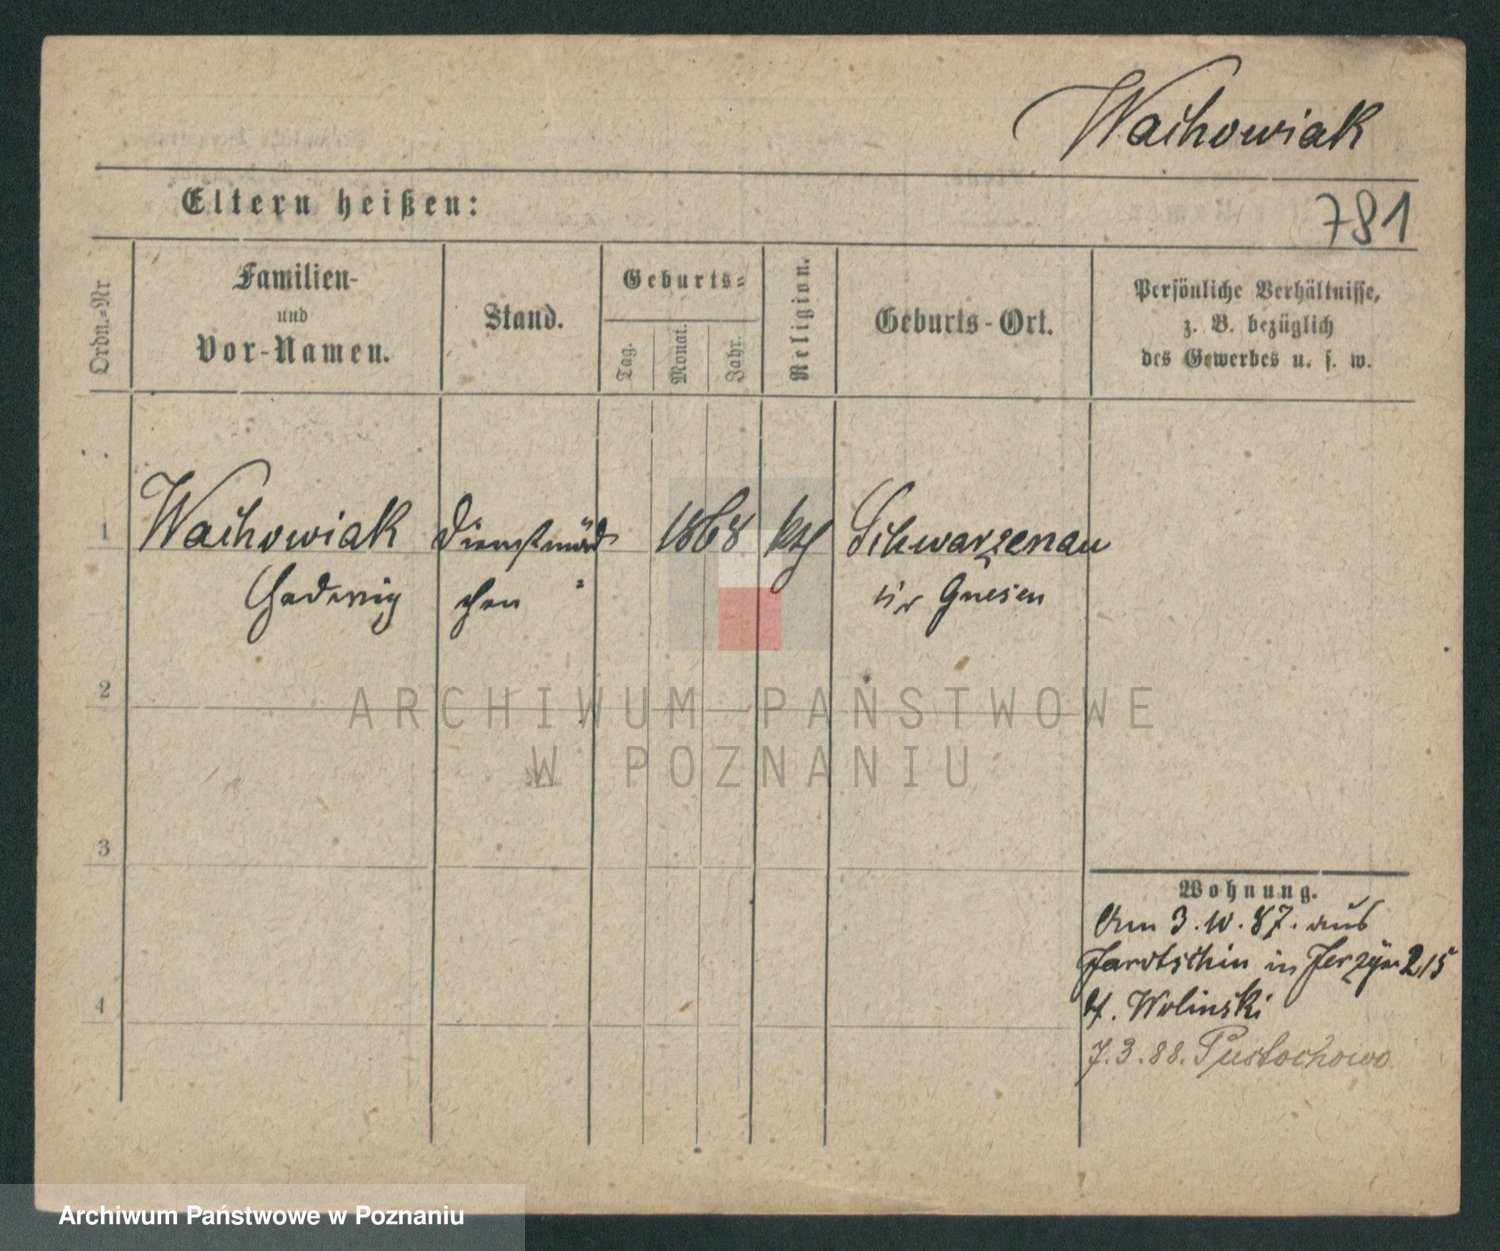 Wachowiak
Eltern heißen:
781
Ordn.-Nr
Familien-
und
Vor-Namen.
Stand.
Geburts-
Tag.
Monat.
Jahr.
Religion.
Geburts-Ort.
Persönliche Verhältnisse,
z. B. bezüglich
des Gewerbes u. s. w.
1 Wachowiak Dienstmäd 1868 kth Schwarzenau
Hedwig chen Gnesen
2
ARCHIWUM PAŃSTWOWE
W POZNANIU
3
Wohnung.
Am 3. 10. 87. aus
Jarotschin in Jerzyce 215
b/. Wolinski
4
7.3.88. Pustochowo.
Archiwum Państwowe w Poznaniu